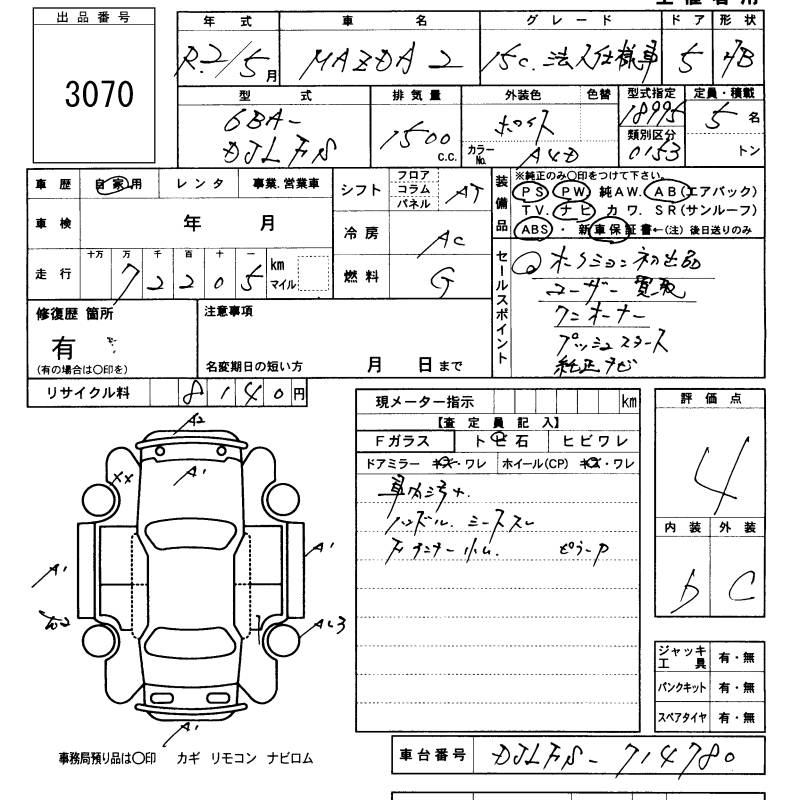 出品番号
3070
年式 車名 グレード ドア 形状
R.2/5月 MAZDA 2 15C. 法人仕様車 5 HB
型式 排気量 外装色 色替 型式指定 定員・積載
6BA-
DJLFS
1500 c.c.
ホワイト
カラーNo. A4D
18995
類別区分
0153
5名
トン
車歴 自家用 レンタ 事業.営業車
車検 年 月
走行 十万 万 千 百 十 一
72205 km
マイル
シフト フロア コラム パネル AT
冷房 AC
燃料 G
装備品
※純正のみ〇印をつけて下さい。
PS PW 純AW. AB(エアバック)
TV. ナビ カワ. SR(サンルーフ)
ABS ・ 新車保証書←(注)後日送りのみ
セールスポイント
オークション初出品
ユーザー買取
ワンオーナー
プッシュスタート
純正ナビ
修復歴 箇所
有
(有の場合は〇印を)
注意事項
名変期日の短い方 月 日まで
リサイクル料 8140円
現メーター指示 km
【査定員記入】
Fガラス トビ石 ヒビワレ
ドアミラー キズ・ワレ ホイール(CP) キズ・ワレ
車内汚れ
ハンドル. シートスレ
評価点
4
内装 外装
b C
A2
A1
XX
A1
A1
A1
ジャッキ工具 有・無
パンクキット 有・無
スペアタイヤ 有・無
事務局預り品は〇印 カギ リモコン ナビロム
車台番号 DJLFS-714780